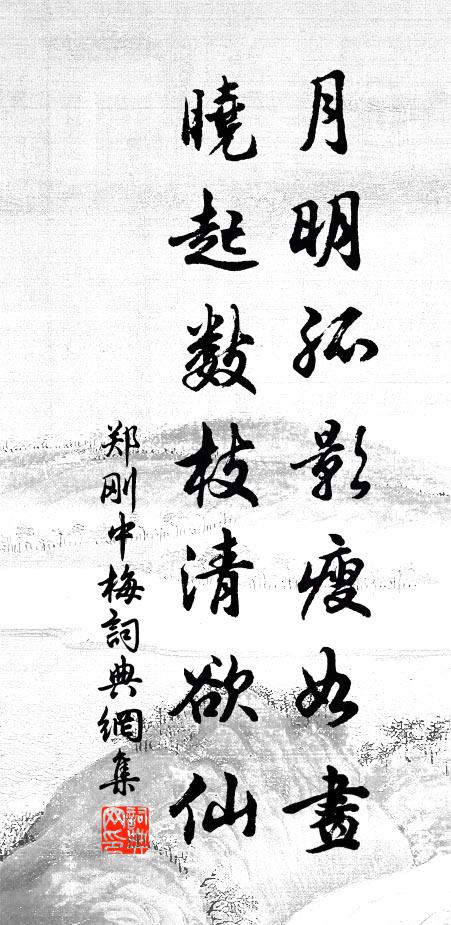 月明孤影瘦如畫
曉起數枝清欲仙
郑刚中梅詞典網集